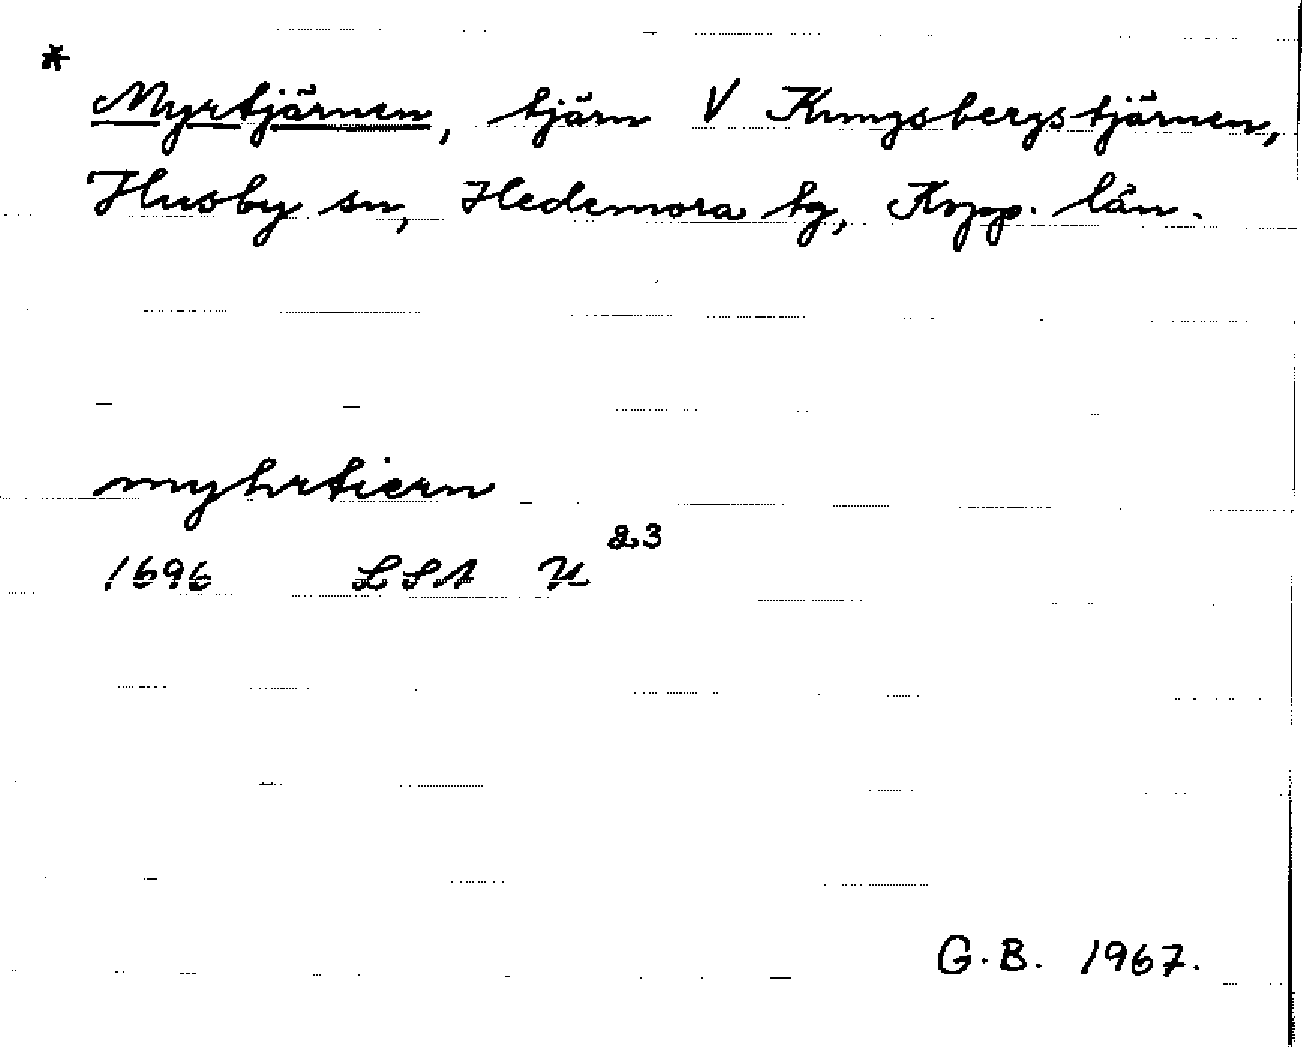 * Myrtjärnen, tjärn V Kungsbergstjärnen,
Husby sn, Hedemora tg, Kopp. län.
myhrtiern
1696 LSA U 23
G.B. 1967.